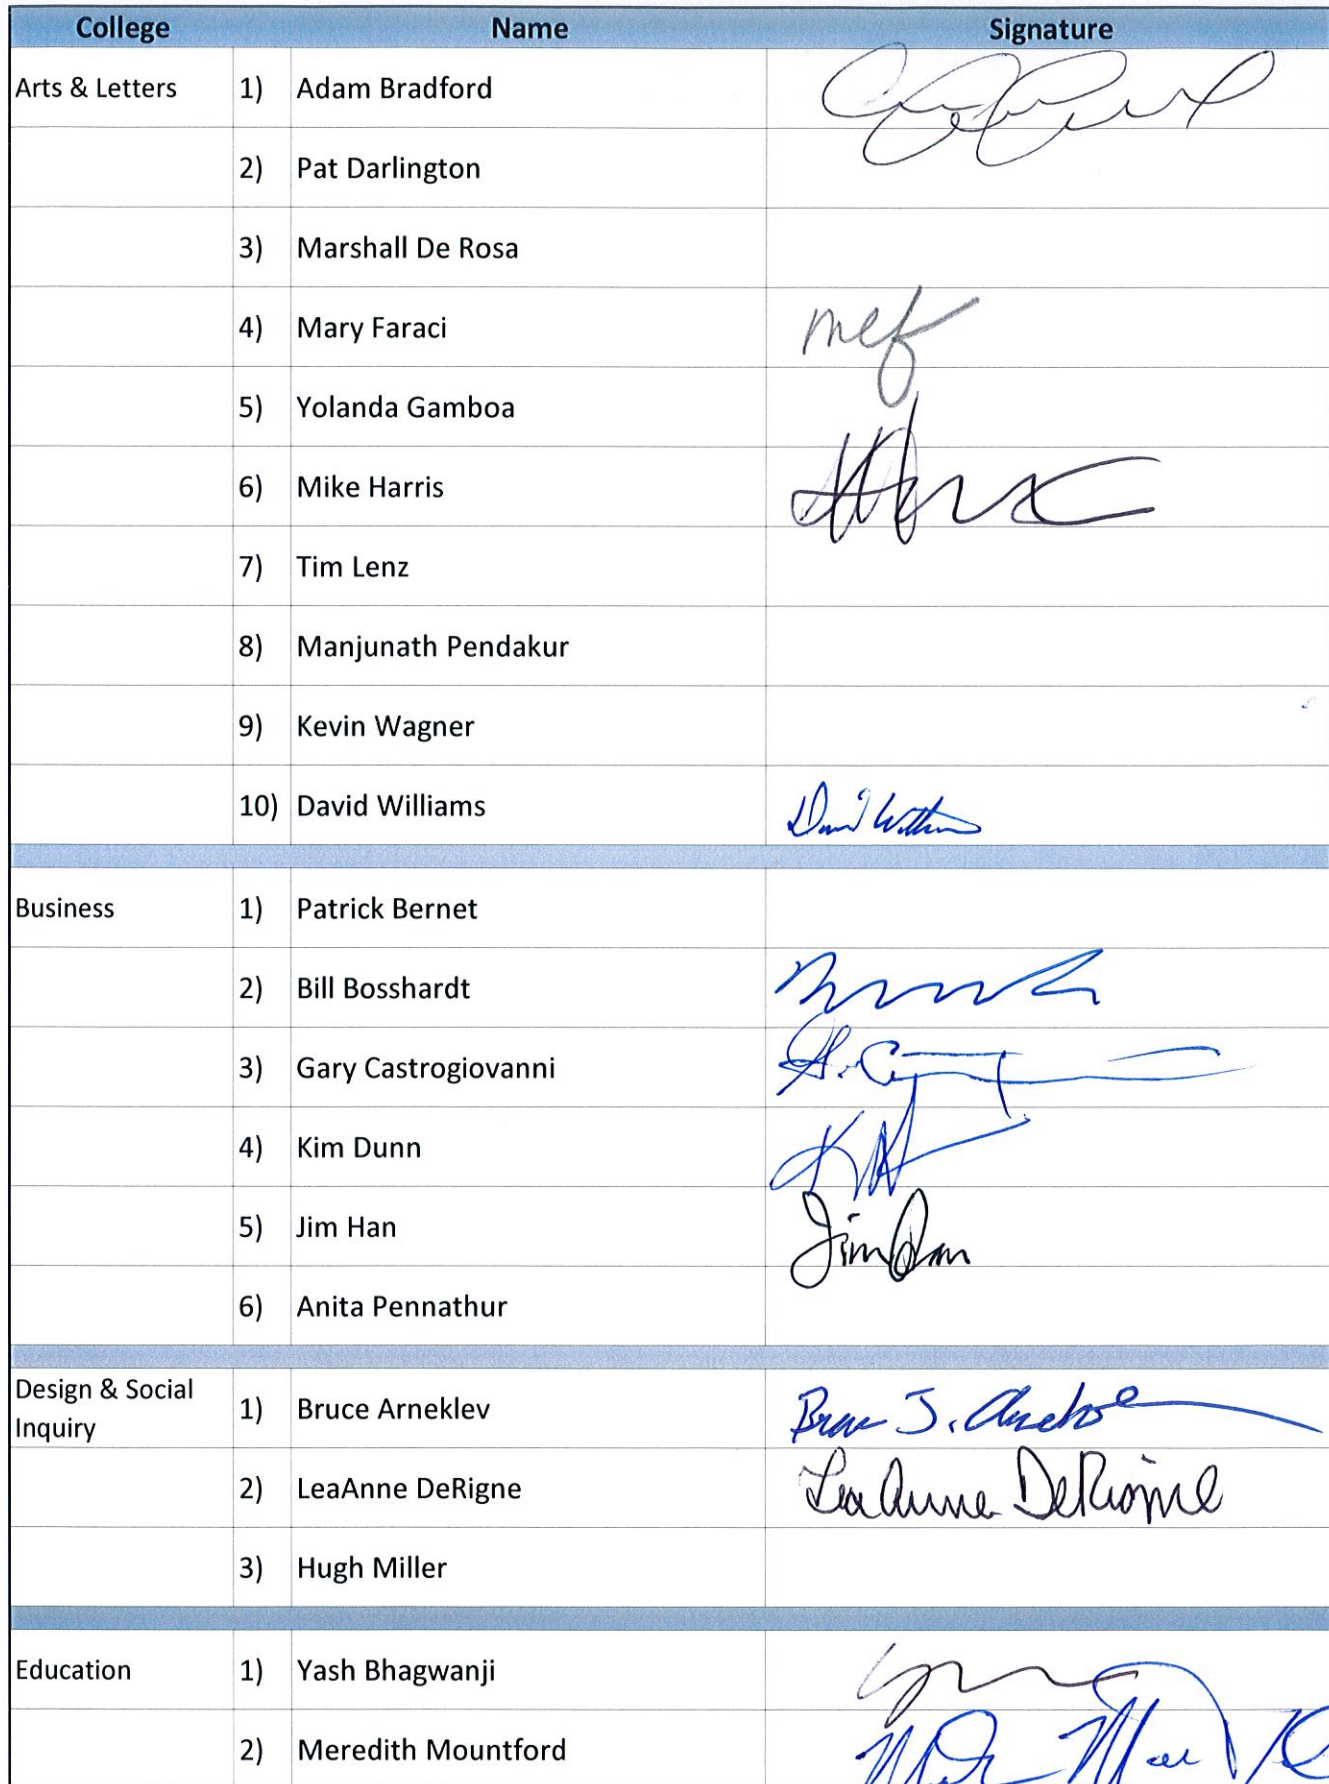 College Name Signature
Arts & Letters 1) Adam Bradford
2) Pat Darlington
3) Marshall De Rosa
4) Mary Faraci mef
5) Yolanda Gamboa
6) Mike Harris
7) Tim Lenz
8) Manjunath Pendakur
9) Kevin Wagner
10) David Williams David Williams
Business 1) Patrick Bernet
2) Bill Bosshardt
3) Gary Castrogiovanni
4) Kim Dunn
5) Jim Han Jim Han
6) Anita Pennathur
Design & Social
Inquiry 1) Bruce Arneklev Bruce J. Arneklev
2) LeaAnne DeRigne LeaAnne DeRigne
3) Hugh Miller
Education 1) Yash Bhagwanji
2) Meredith Mountford